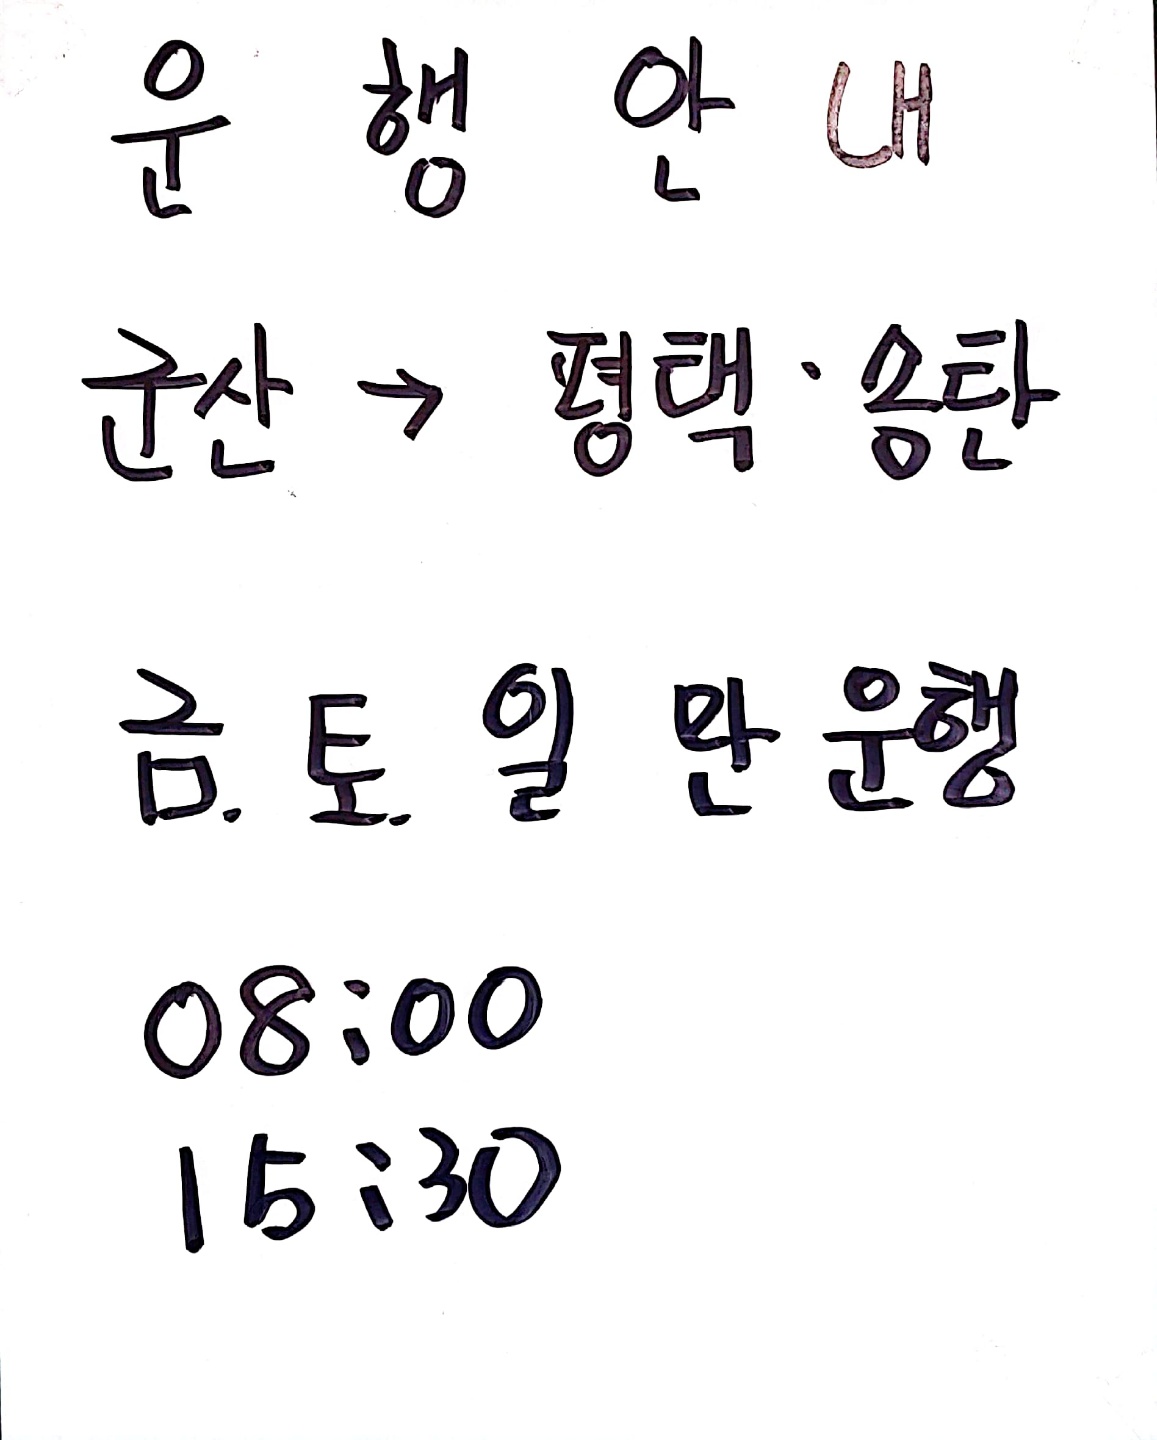 운행안내
군산 → 평택 · 송탄
금. 토. 일 만 운행
08:00
15:30